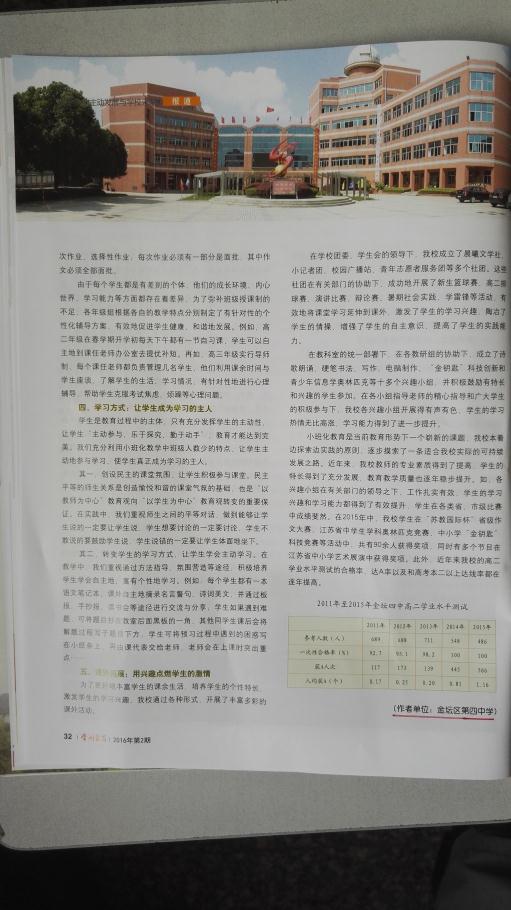 主动发展与
报道
次作业、选择性作业，每次作业必须有一部分是面批，其中作
文必须全部面批。
由于每个学生都是有差别的个体，他们的成长环境、内心
世界、学习能力等方面都存在着差异，为了弥补班级授课制的
不足，各年级组根据各自的教学特点分别制定了有针对性的个
性化辅导方案，有效地促进学生健康、和谐地发展。例如，高
二年级在春学期开学初每天下午都有一节自习课，学生可以自
主地到课任老师办公室去提优补短。再如，高三年级实行导师
制，每个课任老师都负责管理几名学生，他们利用课余时间与
学生座谈，了解学生的生活、学习情况，有针对性地进行心理
辅导，帮助学生克服考试焦虑、烦躁等心理问题。
四、学习方式：让学生成为学习的主人
学生是教育过程中的主体，只有充分发挥学生的主动性，
让学生“主动参与、乐于探究、勤于动手”，教育才能达到完
美。我们充分利用小班化教学中班级人数少的特点，让学生主
动地参与学习，使学生真正成为学习的主人。
其一，创设民主的课堂氛围，让学生积极参与课堂。民主
平等的师生关系是创造愉悦和谐的课堂气氛的基础，也是“以
教师为中心”教育观向“以学生为中心”教育观转变的重要保
证。在实践中，我们重视师生之间的平等对话，做到能够让学
生说的一定要让学生说，学生想要讨论的一定要讨论，学生不
敢说的要鼓励学生说，学生说错的一定要让学生体面地坐下。
其二，转变学生的学习方式，让学生学会主动学习。在
教学中，我们重视通过方法指导、氛围营造等途径，积极培养
学生学会自主地、富有个性地学习。例如，每个学生都有一本
语文笔记本，课外自主地摘录名言警句、诗词美文，并通过板
报、手抄报、读书会等途径进行交流与分享；学生如果遇到难
题，可将题目抄在教室后面黑板的一角，其他同学生课后会将
解题过程写于题目下方；学生可将预习过程中遇到的困惑写
在小纸条上，再由课代表交给老师，老师会在上课时突出重
点……
五、课外拓展：用兴趣点燃学生的激情
为了更好地丰富学生的课余生活，培养学生的个性特长，
激发学生的学习兴趣，我校通过各种形式，开展了丰富多彩的
课外活动。
在学校团委、学生会的领导下，我校成立了晨曦文学社、
小记者团、校园广播站、青年志愿者服务团等多个社团。这些
社团在有关部门的协助下，成功地开展了新生篮球赛、高二排
球赛、演讲比赛、辩论赛、暑期社会实践、学雷锋等活动，有
效地将课堂学习延伸到课外，激发了学生的学习兴趣，陶冶了
学生的情操，增强了学生的自主意识，提高了学生的实践能
力。
在教科室的统一部署下，在各教研组的协助下，成立了诗
歌朗诵、硬笔书法、写作、电脑制作、“金钥匙”科技创新和
青少年信息学奥林匹克等十多个兴趣小组，并积极鼓励有特长
和兴趣的学生参加。在各小组指导老师的精心指导和广大学生
的积极参与下，我校各兴趣小组开展得有声有色，学生的学习
热情无比高涨，学习能力得到了进一步提升。
小班化教育是当前教育形势下一个崭新的课题，我校本着
边探索边实践的原则，逐步摸索了一条适合我校实际的可持续
发展之路。近年来，我校教师的专业素质得到了提高，学生的
特长得到了充分发展，教育教学质量也逐年稳步提升。如，各
兴趣小组在有关部门的领导之下，工作扎实有效，学生的学习
兴趣和学习能力都得到了有效提升，学生在各类省、市级比赛
中成绩斐然。在2015年中，我校学生在“苏教国际杯”省级作
文大赛、江苏省中学生学科奥林匹克竞赛、中小学“金钥匙”
科技竞赛等活动中，共有90余人获得奖项，同时有多个节目在
江苏省中小学艺术展演中获得奖项。此外，近年来我校的高二
学业水平测试的合格率、达A率以及和高考本二以上达线率都在
逐年提高。
2011年至2015年金坛四中高二学业水平测试
2011年 2012年 2013年 2014年 2015年
参考人数（人） 689 688 711 548 486
一次性合格率（%） 92.7 93.1 98.2 100 100
获A人次 117 173 139 445 566
人均获A（个） 0.17 0.25 0.20 0.81 1.16
（作者单位：金坛区第四中学）
32 | 2016年第2期